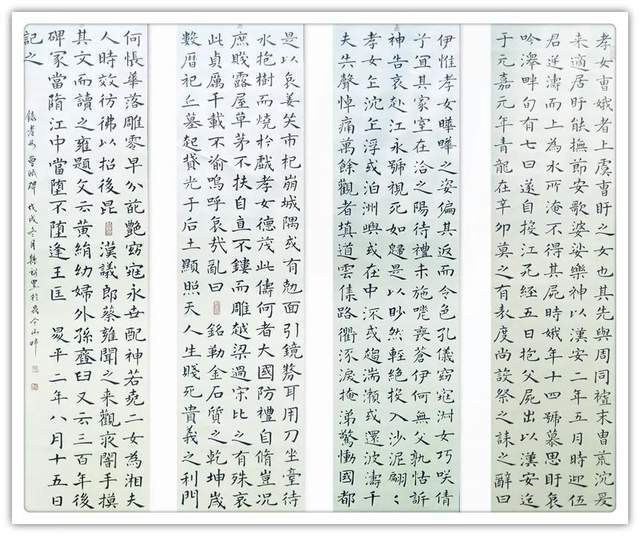 孝女曹娥者上虞曹盱之女也其先與周同祖末曹荒沈爰
来適居盱能撫節安歌婆娑樂神以漢安二年五月時迎伍
君逆濤而上為水所淹不得其屍時娥年十四號慕思盱哀
吟澤畔旬有七日遂自投江死經五日抱父屍出以漢安迄
于元嘉元年青龍在辛卯莫之有表度尚設祭之誄之辭曰
伊惟孝女曄曄之姿偏其返而令色孔儀窈窕淑女巧咲倩
兮宜其家室在洽之陽待禮未施嗟喪蒼伊何無父孰怙訴
神告哀赴江永號視死如歸是以眇然輕絶投入沙泥翩翩
孝女乍沈乍浮或泊洲嶼或在中流或趨湍瀬或還波濤千
夫失聲悼痛萬餘觀者填道雲集路衢流淚掩涕驚慟國都
是以哀姜哭市杞崩城隅或有勉面引鏡剺耳用刀坐臺待
水抱樹而燒於戱孝女德茂此儔何者大國防禮自脩豈况
庶賤露屋草茅不扶自直不鏤而雕越梁過宋比之有殊哀
此貞厲千載不渝嗚呼哀哉亂曰 銘勒金石質之乾坤歲
數暦祀丘墓起墳光于后土顯照天人生賤死貴義之利門
何悵華落雕零早分葩艷窈窕永世配神若堯二女為湘夫
人時效仿彿以招後昆 漢議郎蔡雍聞之来觀夜闇手摸
其文而讀之雍題文云黄絹幼婦外孫齏臼又云三百年後
碑冢當隋江中當墮不墮逢王匡 昇平二年八月十五日
記之
錄孝女曹娥碑 戊戌冬月